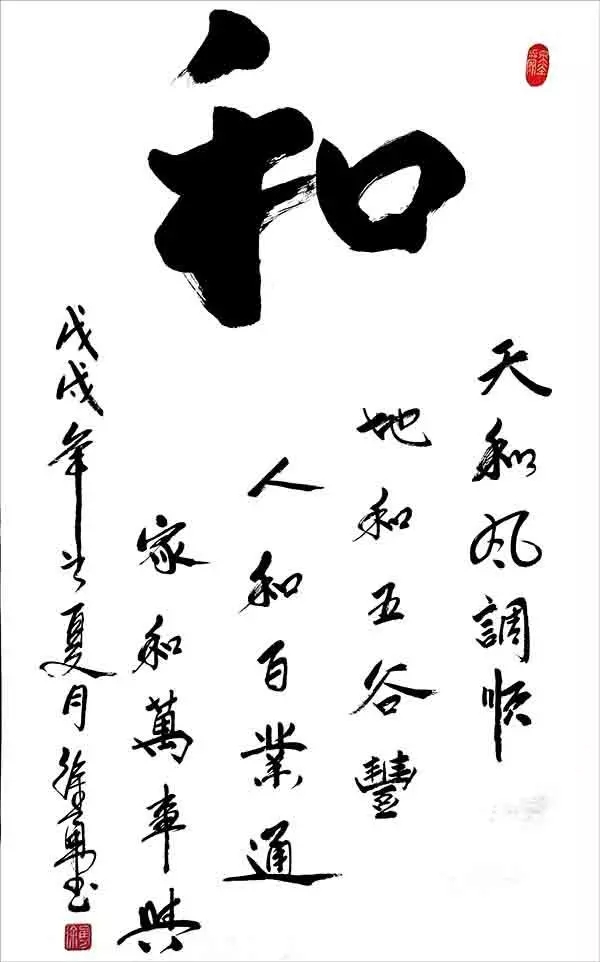 和
天和风調順
地和五谷豐
人和百業通
家和萬事興
戊戌年之夏月徐勇书